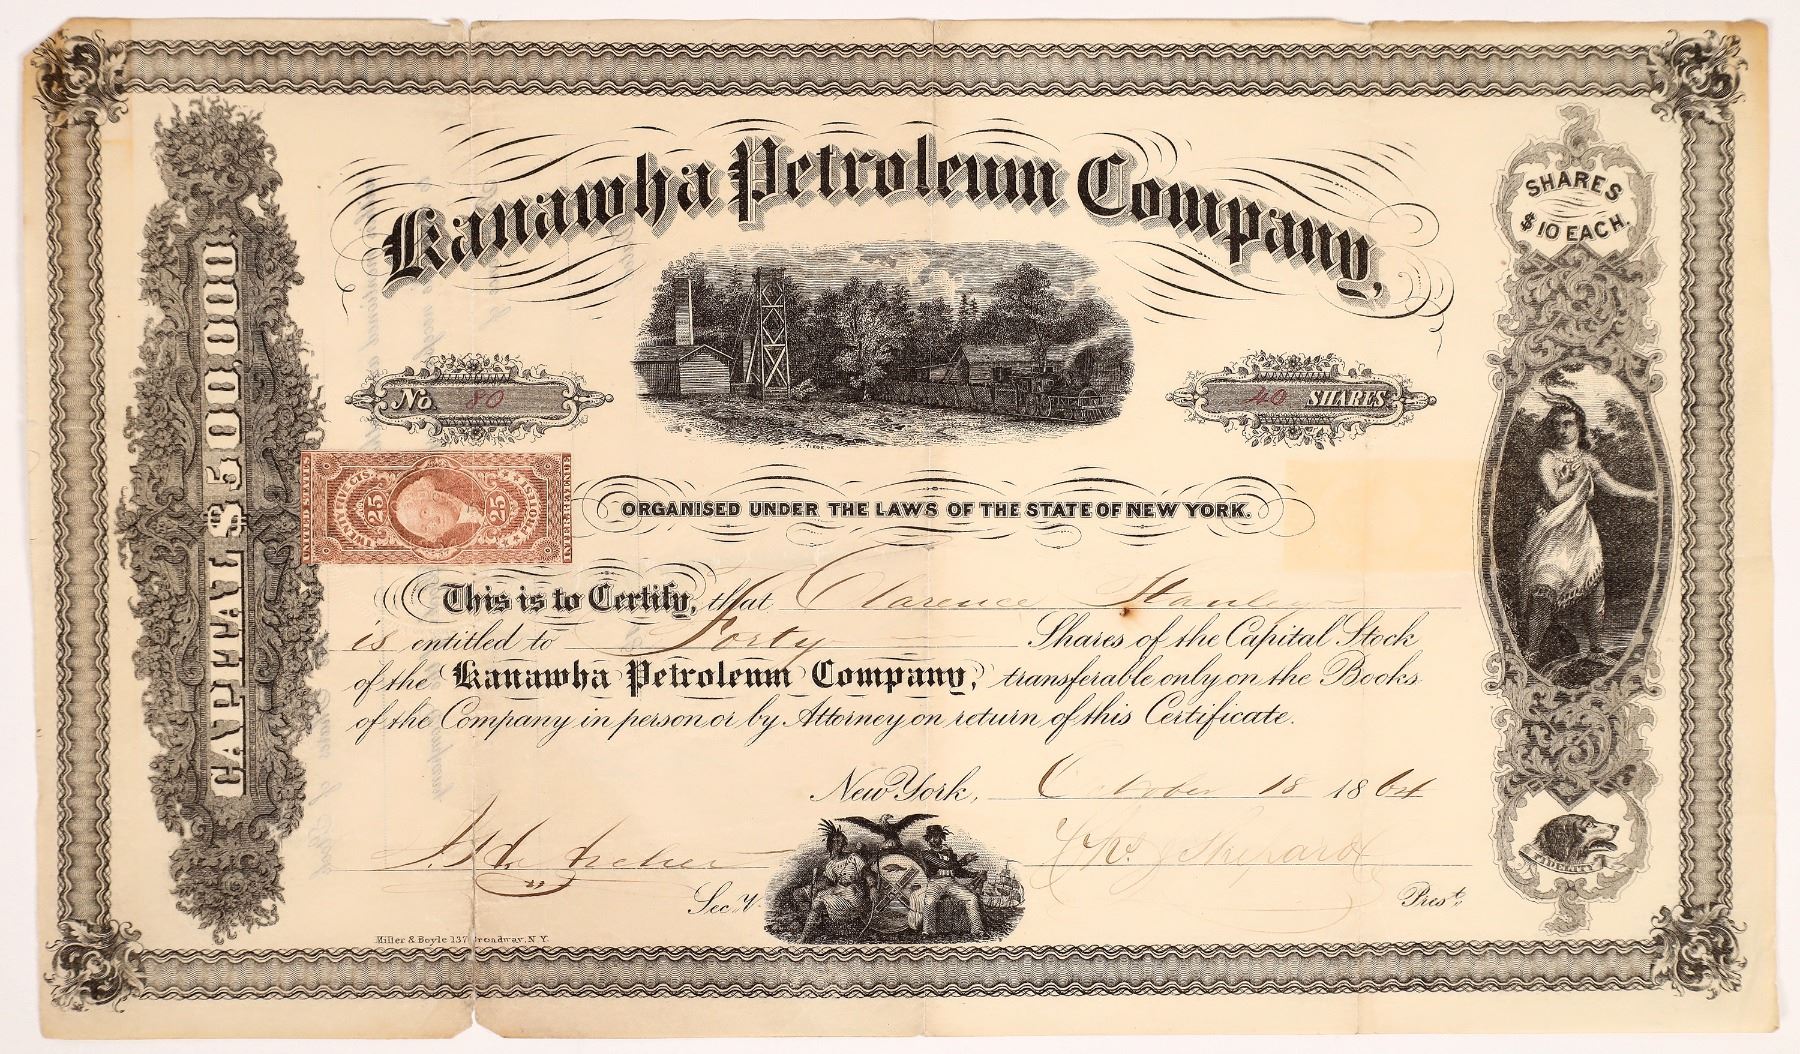 Kanawha Petroleum Company,
SHARES
$10 EACH.
CAPITAL $500,000
No. 80
40 SHARES
UNITED STATES
INTER. REVENUE
25
25
ORGANISED UNDER THE LAWS OF THE STATE OF NEW YORK.
This is to Certify, that Clarence Stanley
is entitled to Forty Shares of the Capital Stock
of the Kanawha Petroleum Company, transferable only on the Books
of the Company in person or by Attorney on return of this Certificate.
New York, October 18 1864
Archer
Chs J Shepard
Sec.y.
Pres.t.
FIDELITY
Miller & Boyle 137 Broadway, N.Y.